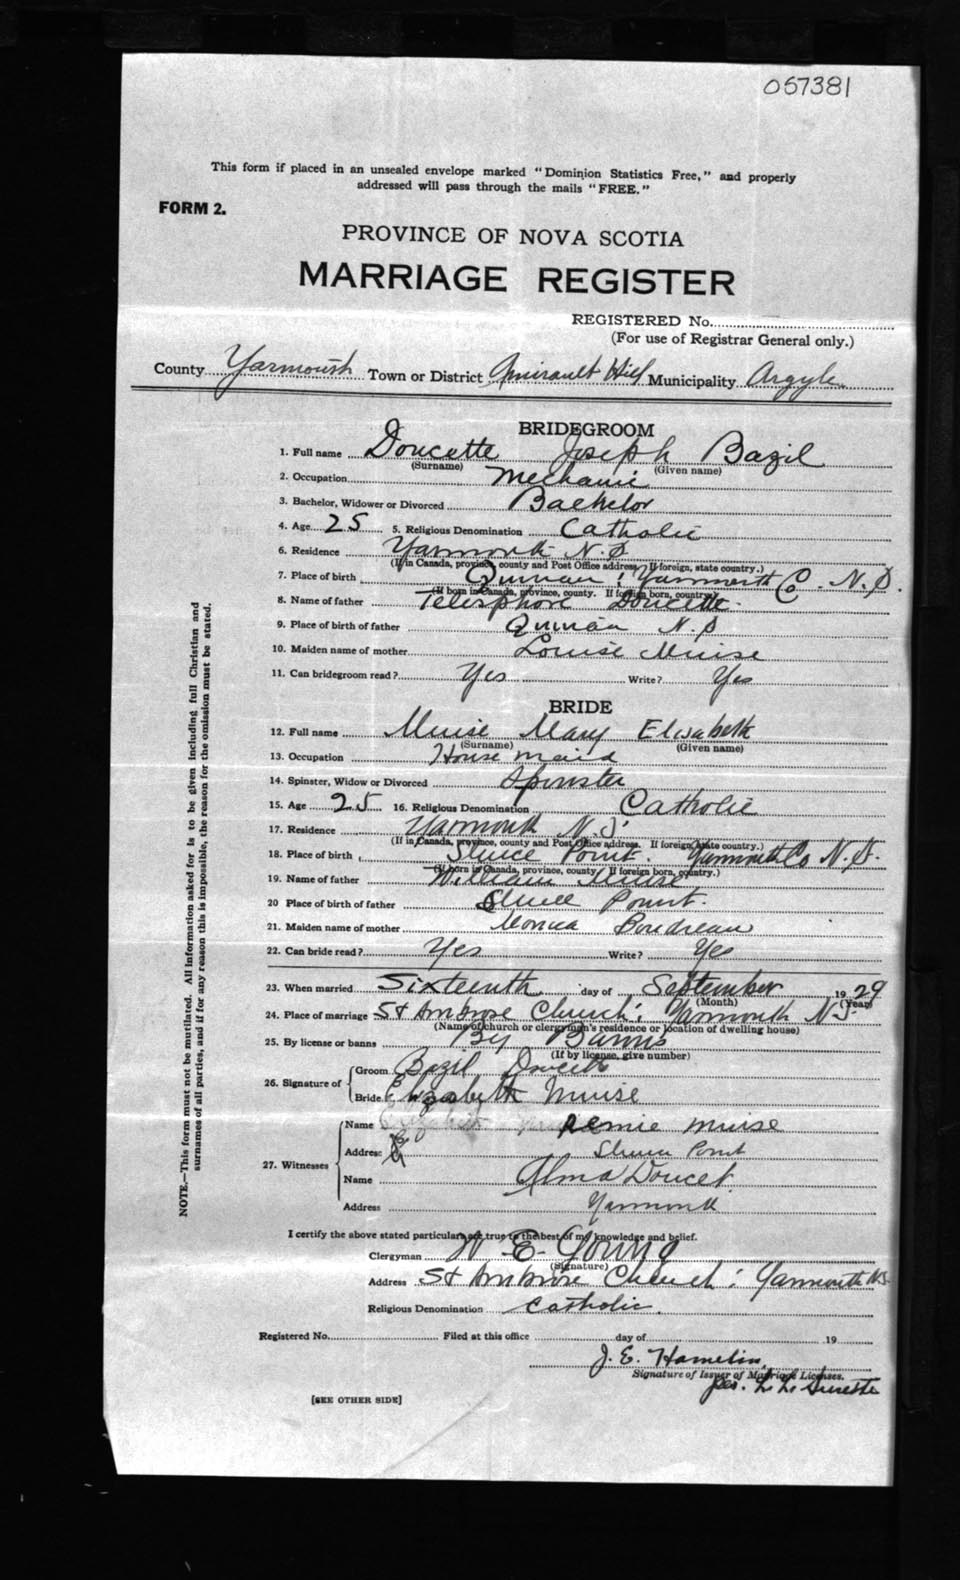 057381
This form if placed in an unsealed envelope marked "Dominion Statistics Free," and properly
addressed will pass through the mails "FREE."
FORM 2.
PROVINCE OF NOVA SCOTIA
MARRIAGE REGISTER
REGISTERED No.
(For use of Registrar General only.)
County Yarmouth Town or District Amirault Hill Municipality Argyle
BRIDEGROOM
1. Full name Doucette Joseph Bazil
(Surname) (Given name)
2. Occupation Mechanic
3. Bachelor, Widower or Divorced Bachelor
4. Age 25 5. Religious Denomination Catholic
6. Residence Yarmouth N.S
(If in Canada, province, county and Post Office address. If foreign, state country.)
7. Place of birth Quinan, Yarmouth Co. N.S.
(If born in Canada, province, county. If foreign born, country.)
8. Name of father Telesphore Doucette.
9. Place of birth of father Quinan N.S
10. Maiden name of mother Louise Muise
11. Can bridegroom read? Yes Write? Yes
BRIDE
12. Full name Muise Mary Elisabeth
(Surname) (Given name)
13. Occupation House maid
14. Spinster, Widow or Divorced Spinster
15. Age 25 16. Religious Denomination Catholic
17. Residence Yarmouth N.S.
(If in Canada, province, county and Post Office address. If foreign, state country.)
18. Place of birth Sluice Point. Yarmouth Co N.S.
(If born in Canada, province, county. If foreign born, country.)
19. Name of father William Muise
20 Place of birth of father Sluice Point.
21. Maiden name of mother Monica Boudreau
22. Can bride read? Yes Write? Yes
23. When married Sixteenth day of September 1929
(Month) (Year)
24. Place of marriage St Ambrose Church, Yarmouth N.S.
(Name of church or clergyman's residence or location of dwelling house)
25. By license or banns By Banns
(If by license, give number)
26. Signature of Groom Bazil Doucette
Bride Elizabeth Muise
27. Witnesses Name Elizabeth Remie Muise
Address Point
Name Alma Doucet
Address Yarmouth
I certify the above stated particulars are true to the best of my knowledge and belief.
Clergyman W E Young
(Signature)
Address St Ambrose Church, Yarmouth N.S.
Religious Denomination Catholic.
Registered No. Filed at this office day of 19
J. E. Hamelin
Signature of Issuer of Marriage Licenses.
per. L. L. Surette
[SEE OTHER SIDE]
NOTE.—This form must not be mutilated. All information asked for is to be given including full Christian and
surnames of all parties, and if for any reason this is impossible, the reason for the omission must be stated.